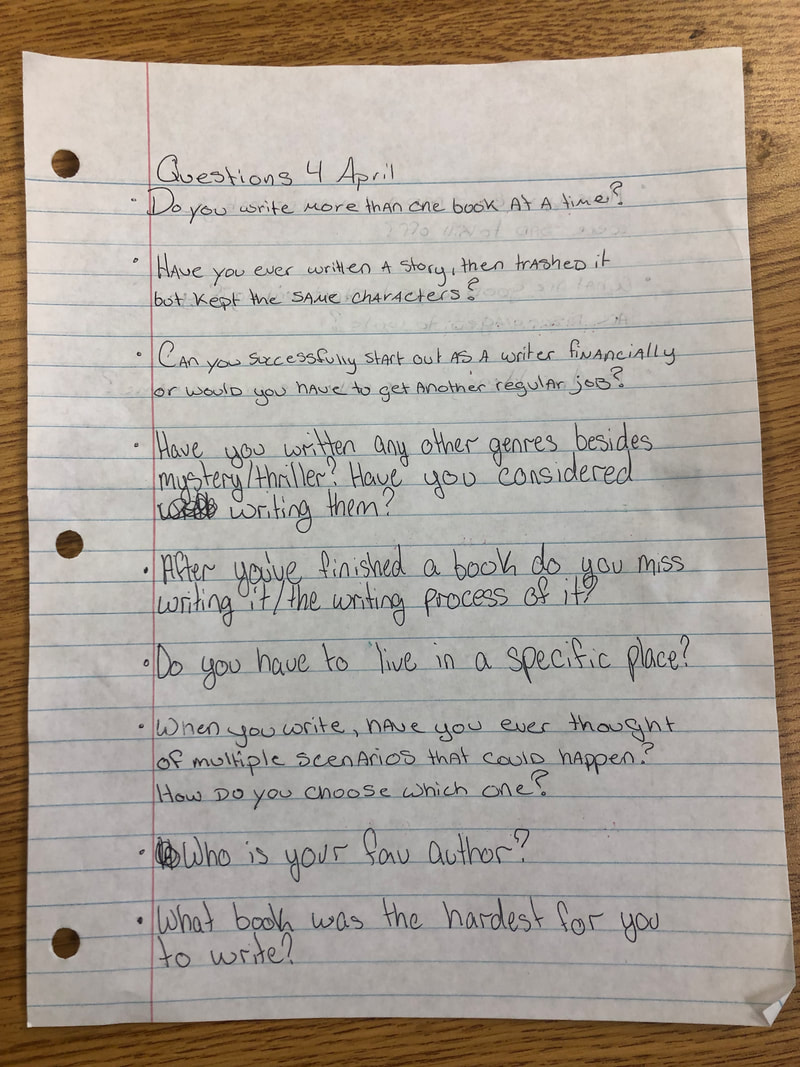 Questions 4 April
• Do you write more than one book at a time?
• Have you ever written a story, then trashed it
but kept the same characters?
• Can you successfully start out as a writer financially
or would you have to get another regular job?
• Have you written any other genres besides
mystery/thriller? Have you considered
writing them?
• After you've finished a book do you miss
writing it/the writing process of it?
• Do you have to live in a specific place?
• When you write, have you ever thought
of multiple scenarios that could happen?
How do you choose which one?
• Who is your fav author?
• What book was the hardest for you
to write?